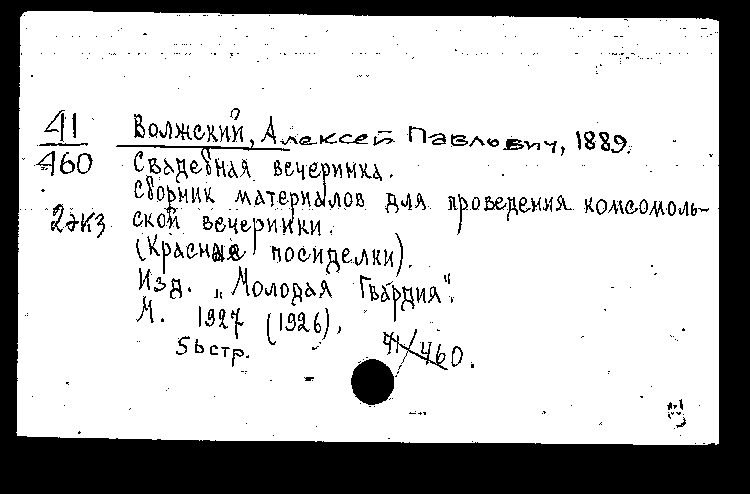 41 Волжский, Алексей Павлович, 1889.
460 Свадебная вечеринка.
Сборник материалов для проведения комсомоль-
2экз ской вечеринки.
(Красные посиделки).
Изд. „Молодая Гвардия".
М. 1927 (1926).
56стр.
41/460.